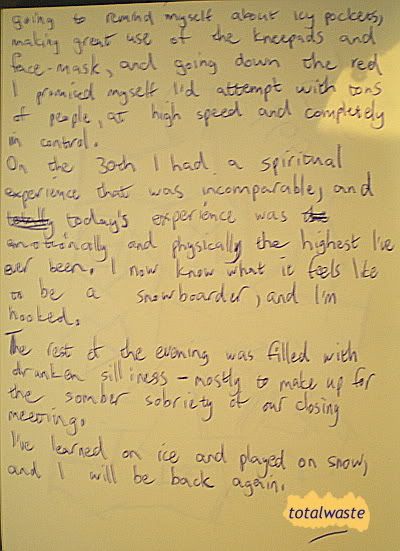 going to remind myself about icy pockets,
making great use of the kneepads and
face-mask, and going down the red
I promised myself I'd attempt with tons
of people, at high speed and completely
in control.
On the 30th I had a spiritual
experience that was incomparable, and
totally today's experience was the
emotionally and physically the highest I've
ever been. I now know what it feels like
to be a snowboarder, and I'm
hooked.
The rest of the evening was filled with
drunken silliness - mostly to make up for
the somber sobriety of our closing
meeting.
I've learned on ice and played on snow,
and I will be back again.
totalwaste